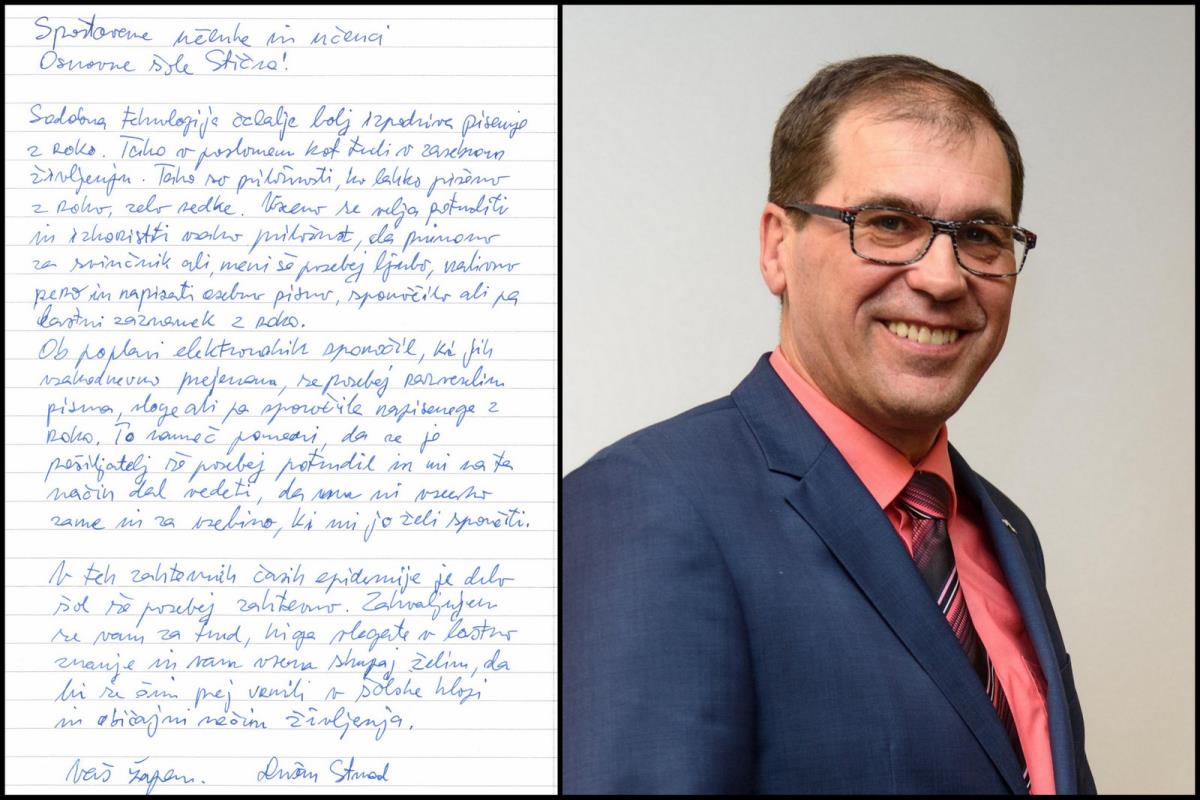 Spoštovane učenke in učenci
Osnovne šole Stična!
Sodobna tehnologija čedalje bolj izpodriva pisanje
z roko. Tako v poslovnem kot tudi v zasebnem
življenju. Tako so priložnosti, ko lahko pišemo
z roko, zelo redke. Vseeno se velja potruditi
in izkoristiti vsako priložnost, da primemo
za svinčnik ali, meni še posebej ljubo, nalivno
pero in napisati osebno pismo, sporočilo ali pa
lastni zaznamek z roko.
Ob poplavi elektronskih sporočil, ki jih
vsakodnevno prejemam, se posebej razveselim
pisma, vloge ali pa sporočila napisanega z
roko. To namreč pomeni, da se je
pošiljatelj še posebej potrudil in mi na ta
način dal vedeti, da mu ni vseeno
zame in za vsebino, ki mi jo želi sporočiti.
V teh zahtevnih časih epidemije je delo
šol še posebej zahtevno. Zahvaljujem
se vam za trud, ki ga vlagate v lastno
znanje in vam vsem skupaj želim, da
bi se čim prej vrnili v šolske klopi
in običajni način življenja.
Vaš župan. Dušan Strnad